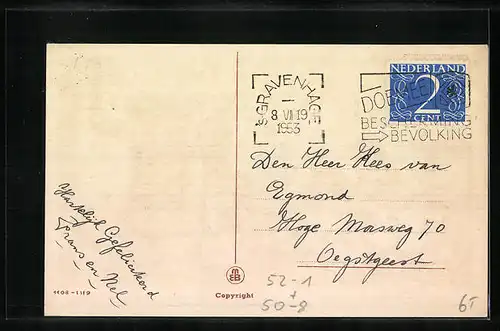 'S GRAVENHAGE
8 VII 19
1953
BESCHERMING
BEVOLKING
NEDERLAND
2
CENT
Den Heer Kees van
Egmond
Hoge Morsweg 70
Oegstgeest
Hartelijk Gefeliciteerd
Frans en Nel
1108-1119
MEB
Copyright
52-1
+
50-8
6T